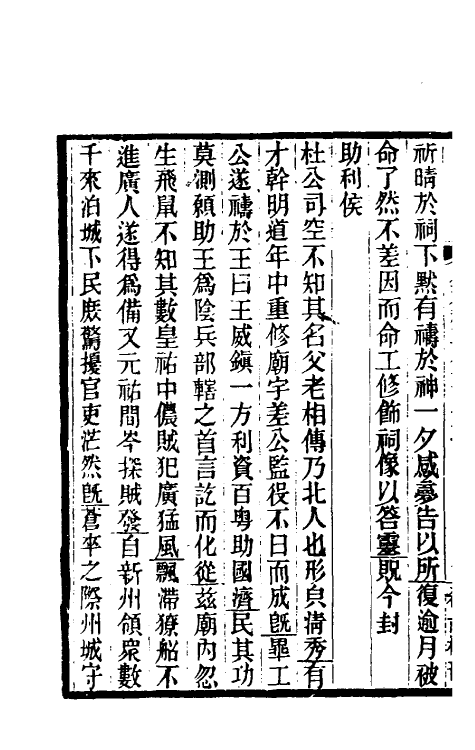 祈晴於祠下黙有禱於神一夕感夢告以所復逾月被
命了然不差因而命工修飾祠像以答靈貺今封
助利侯
杜公司空不知其名父老相傳乃北人也形皃淸秀有
才幹明道年中重修廟宇差公監役不日而成旣畢工
公遂禱於王曰王威鎭一方利資百粤助國濟民其功
莫測願助王爲陰兵部轄之首言訖而化從兹廟內忽
生飛鼠不知其數皇祐中儂賊犯廣猛風飄滯獠船不
進廣人遂得爲備又元祐間岑探賊發自新州領衆數
千來泊城下民庶驚擾官吏茫然旣蒼卒之際州城守